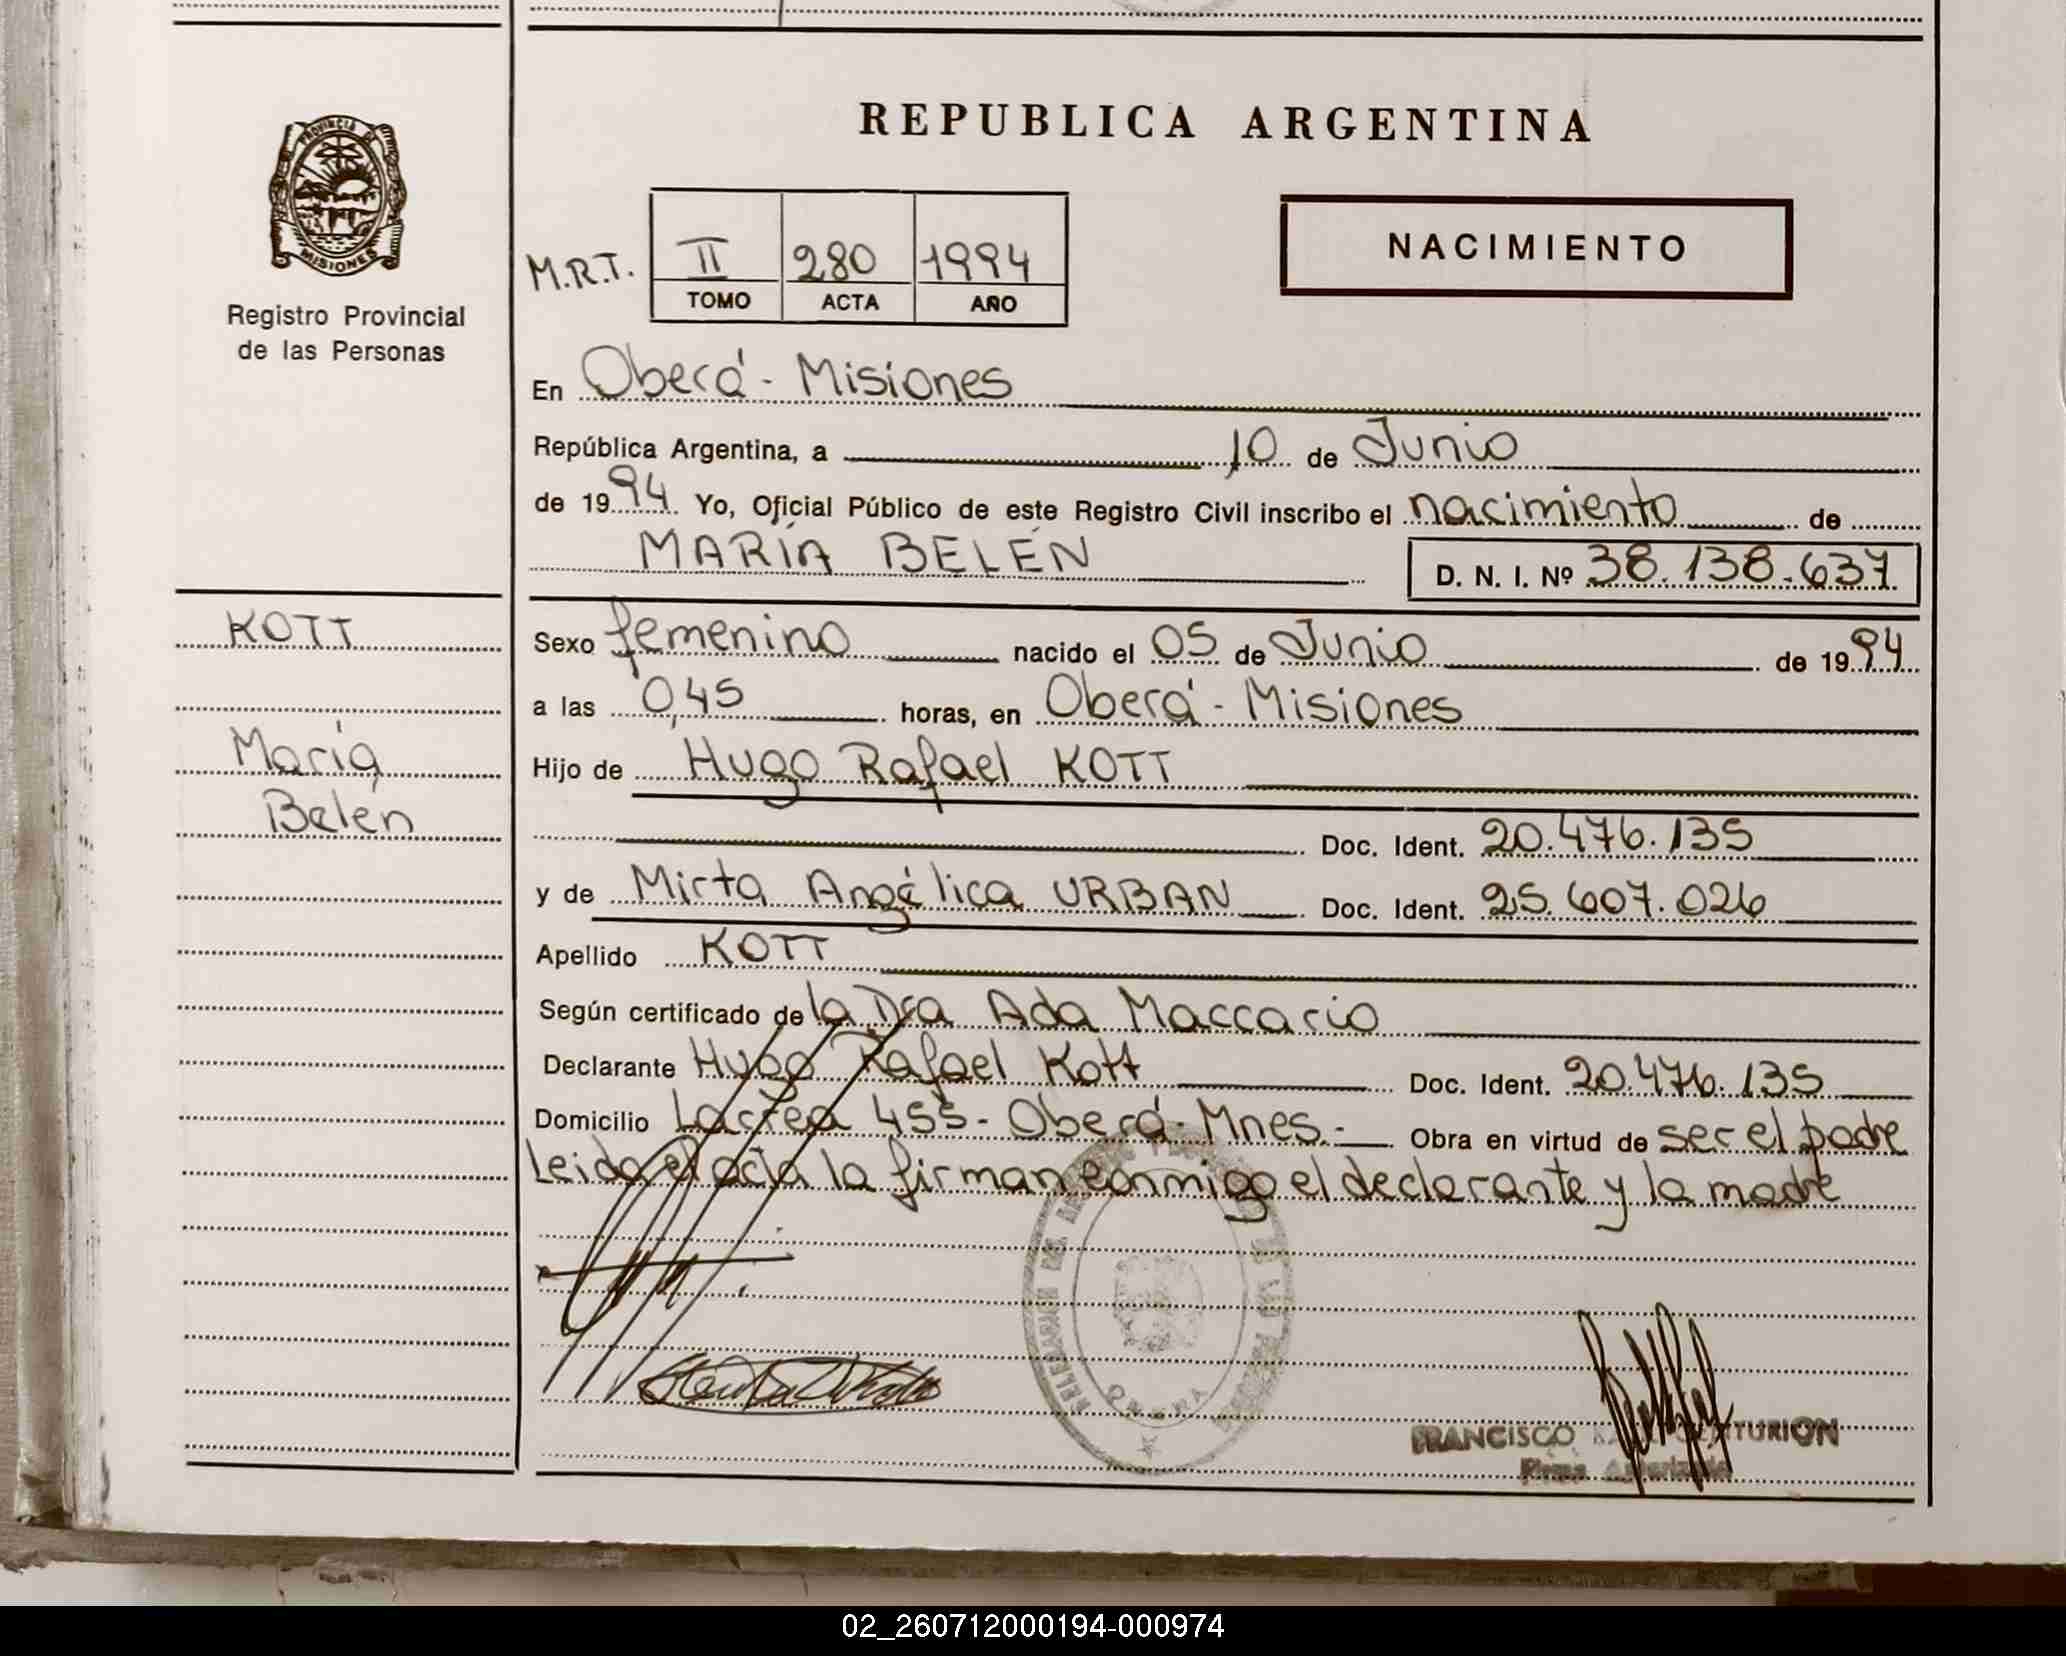 REPUBLICA ARGENTINA
PROVINCIA DE
MISIONES
Registro Provincial
de las Personas
M.R.T.
II 280 1994
TOMO ACTA AÑO
NACIMIENTO
En Oberá - Misiones
República Argentina, a 10 de Junio
de 1994 Yo, Oficial Público de este Registro Civil inscribo el nacimiento de
MARÍA BELÉN D. N. I. Nº 38.138.637
KOTT
María
Belén
Sexo femenino nacido el 05 de Junio de 1994
a las 0,45 horas, en Oberá - Misiones
Hijo de Hugo Rafael KOTT
Doc. Ident. 20.476.135
y de Mirta Angélica URBAN Doc. Ident. 25.607.026
Apellido KOTT
Según certificado de la Dra Ada Maccario
Declarante Hugo Rafael Kott Doc. Ident. 20.476.135
Domicilio 455 - Oberá - Mnes.- Obra en virtud de ser el padre
Leida el acta la firman conmigo el declarante y la madre
OBERA
FRANCISCO CENTURION
Firma Autorizada
02_260712000194-000974